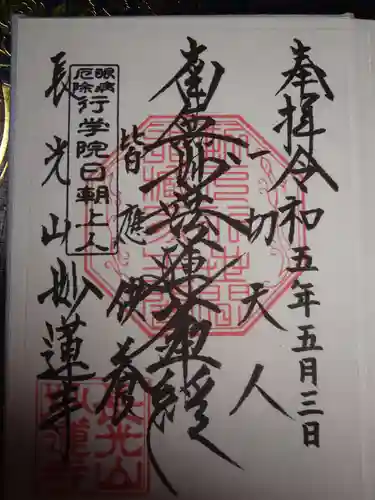 奉拝令和五年五月三日
一切天人
南無妙法蓮華経
皆應供養
眼病
厄除
行学院日朝上人
長光山妙蓮寺